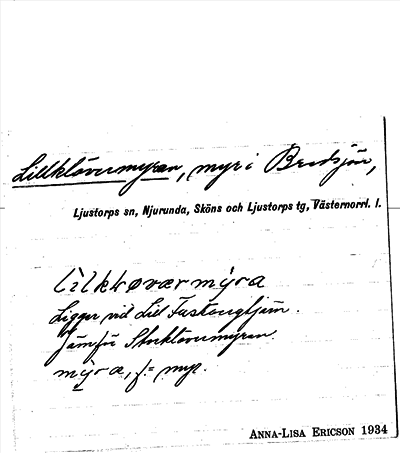 Lillklövermyran, myr i Bredsjön,
Ljustorps sn, Njurunda, Sköns och Ljustorps tg, Västernorrl. l.
Ligger vid Lill
Jämför Storklövermyran.
myra, f. = myr.
ANNA-LISA ERICSON 1934